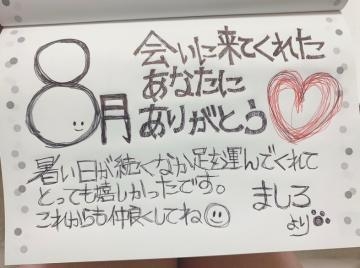 8月
会いに来てくれた
あなたに
ありがとう
暑い日が続くなか足を運んでくれて
とっても嬉しかったです。
これからも仲良くしてね
ましろ
より